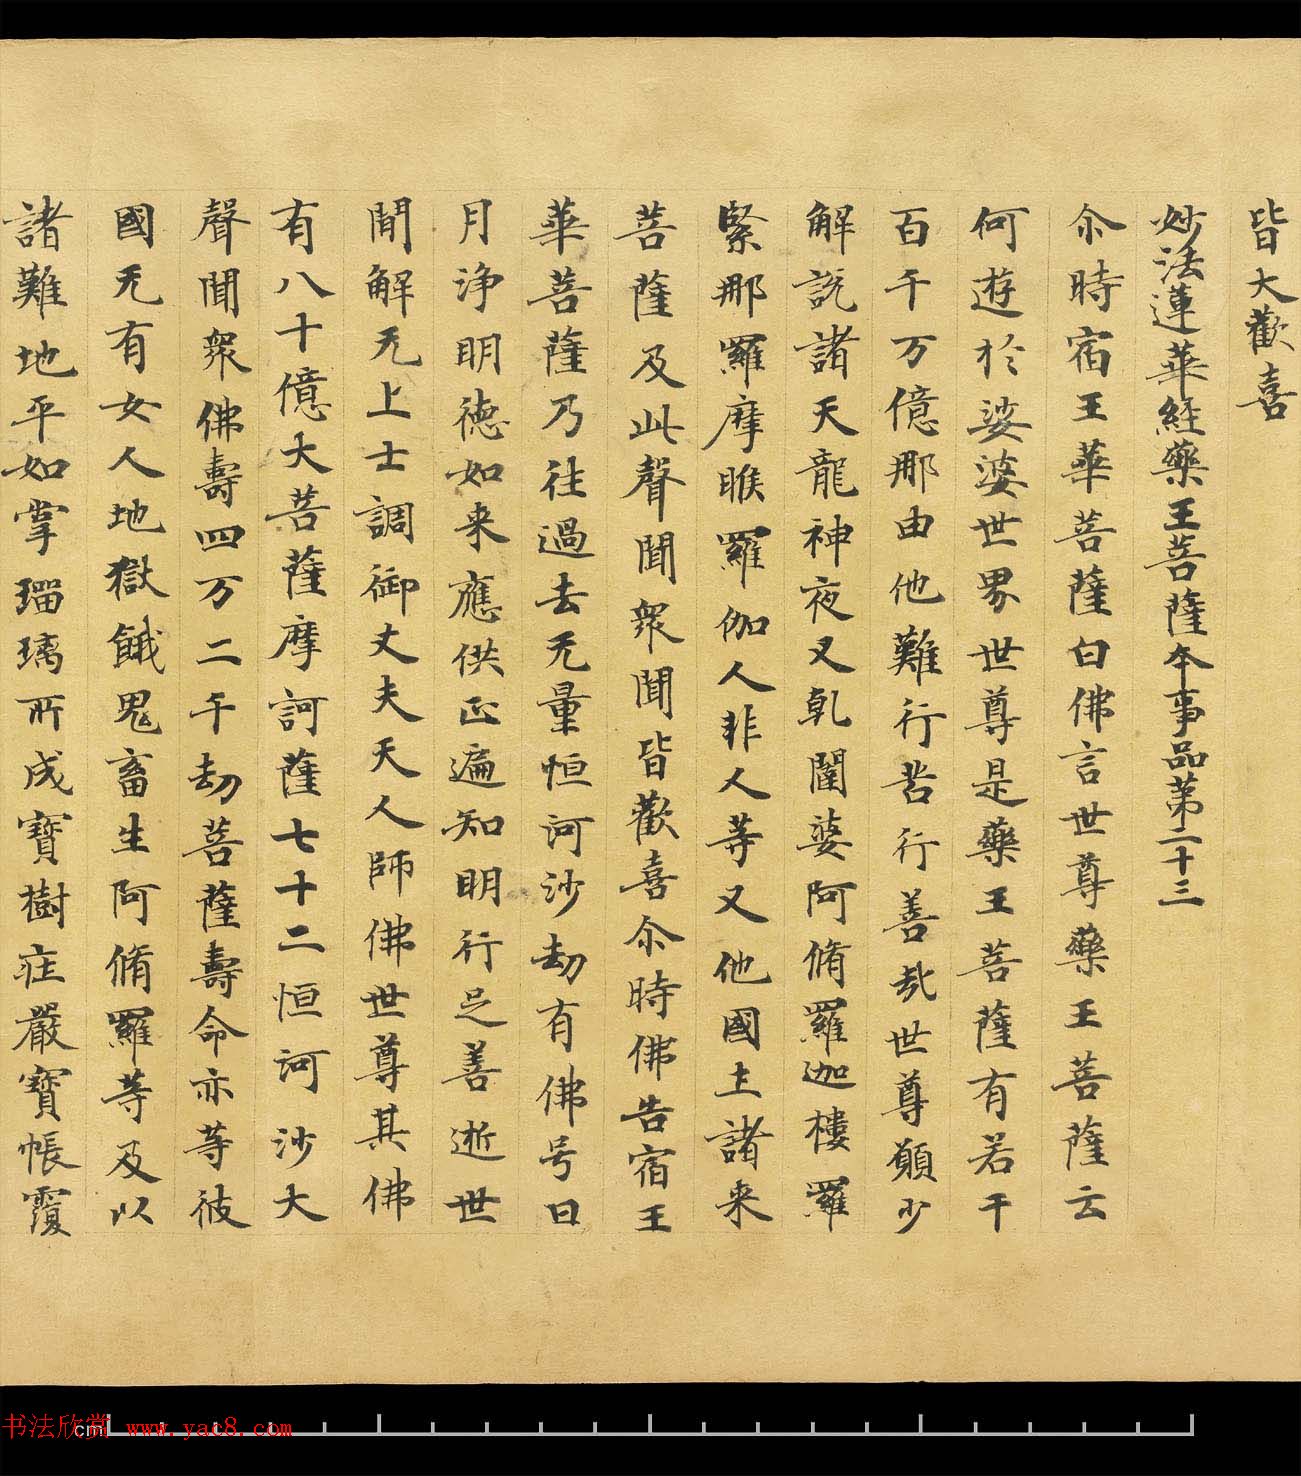 皆大歡喜
妙法蓮華經藥王菩薩本事品第二十三
尒時宿王華菩薩白佛言世尊藥王菩薩云
何遊於娑婆世界世尊是藥王菩薩有若干
百千万億那由他難行苦行善哉世尊願少
解說諸天龍神夜叉乹闥婆阿脩羅迦樓羅
緊那羅摩睺羅伽人非人等又他國土諸来
菩薩及此聲聞衆聞皆歡喜尒時佛告宿王
華菩薩乃往過去无量恒河沙劫有佛号日
月淨明德如来應供正遍知明行足善逝世
間解无上士調御丈夫天人師佛世尊其佛
有八十億大菩薩摩訶薩七十二恒河沙大
聲聞衆佛壽四万二千劫菩薩壽命亦等彼
國无有女人地獄餓鬼畜生阿脩羅等及以
諸難地平如掌瑠璃所成寶樹莊嚴寶帳覆
书法欣赏 www.yac8.com
cm